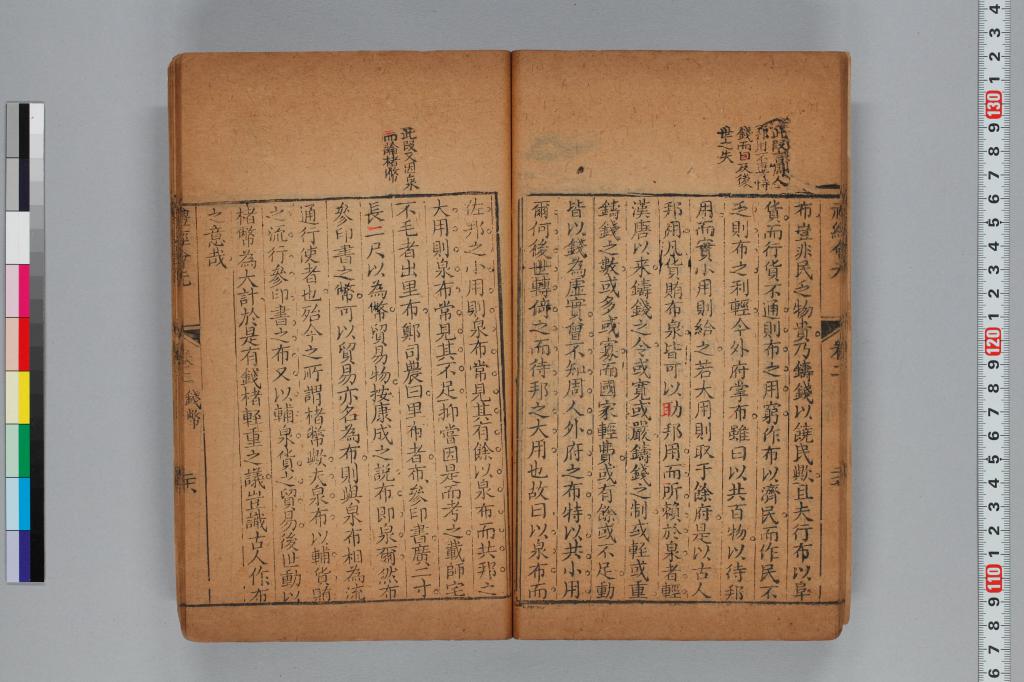 布豈非民之物貴乃鑄錢以饒民歟且夫行布以阜
貨而行貨不通則布之用窮作布以濟民而作民不
乏則布之利輕今外府掌布雖曰以共百物以待邦
用而實小用則給之若大用則取于餘府是以古人
邦用凡貨賄布泉皆可以助邦用而所頼於泉者輕
漢唐以来鑄錢之令或寛或嚴鑄錢之制或輊或重
鑄錢之數或多或寡而國家經費或有餘或不足動
皆以錢為虛實曾不知周人外府之布特以共小用
爾何後世轉倚之而待邦之大用也故曰以泉布而
佐邦之小用則泉布常見其有餘以泉布而共邦之
大用則泉布常見其不足抑嘗因是而考之載師宅
不毛者出里布鄭司農曰里布者布參印書廣二寸
長二尺以為幣貿易物按康成之說布即泉爾然布
參印書之幣可以貿易亦名為布則與泉布相為流
通行使者也殆今之所謂楮幣歟夫泉布以輔貨賄
之流行參印書之布又以輔泉貨之貿易後世動以
楮幣為大計於是有錢楮輊重之議豈識古人作布
之意哉
禮經會元
卷二
錢幣
卷二
此段又因泉
而論楮幣
錢而因及後
世之失